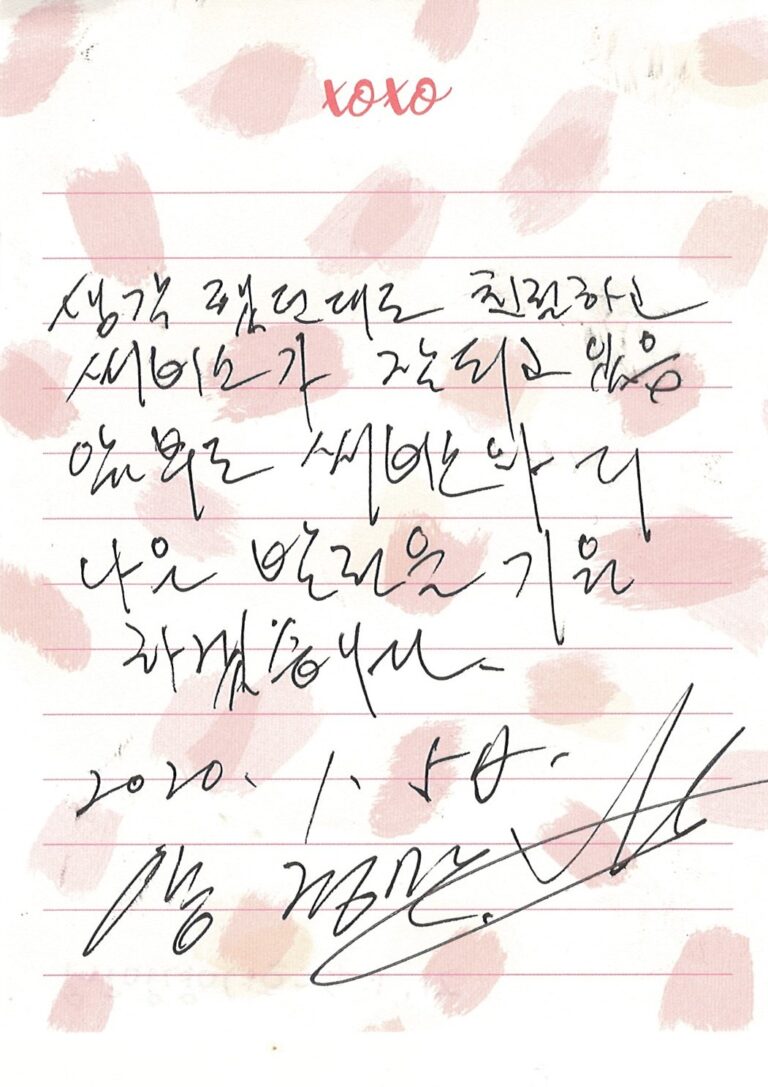 xoxo
생각 했던대로 친절하고
써비스가 잘되고 있음
앞으로 써비스와 더
나은 발전을 기원
하겠습니다.
2020. 1. 5日.